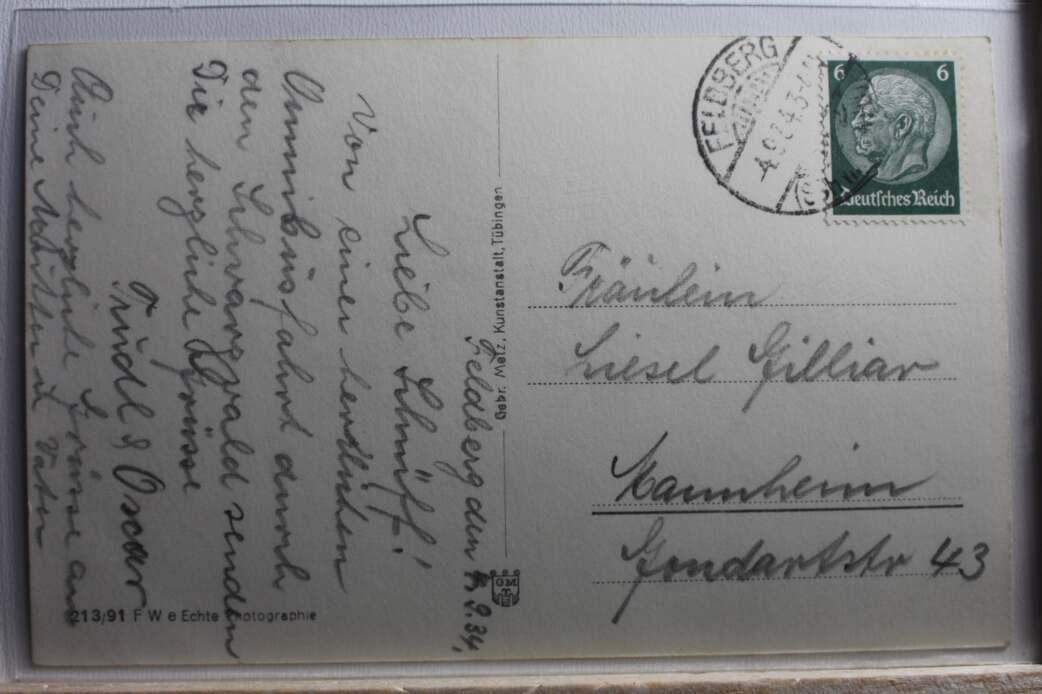 Feldberg den 4.9.34.
Liebe Schnüff!
Von einer herrlichen
Omnibusfahrt durch
den Schwarzwald senden
Dir herzliche Grüsse
Trudl & Oscar
Auch herzliche Grüsse an
Deine Mutter u. Vater
213/91 F W e Echte Photographie
Gebr. Metz, Kunstanstalt, Tübingen
GM
FELDBERG
4.9.34.
(Schw
6 6
Deutsches Reich
Fräulein
Liesel Gilliar
Mannheim
Gondartstr 43